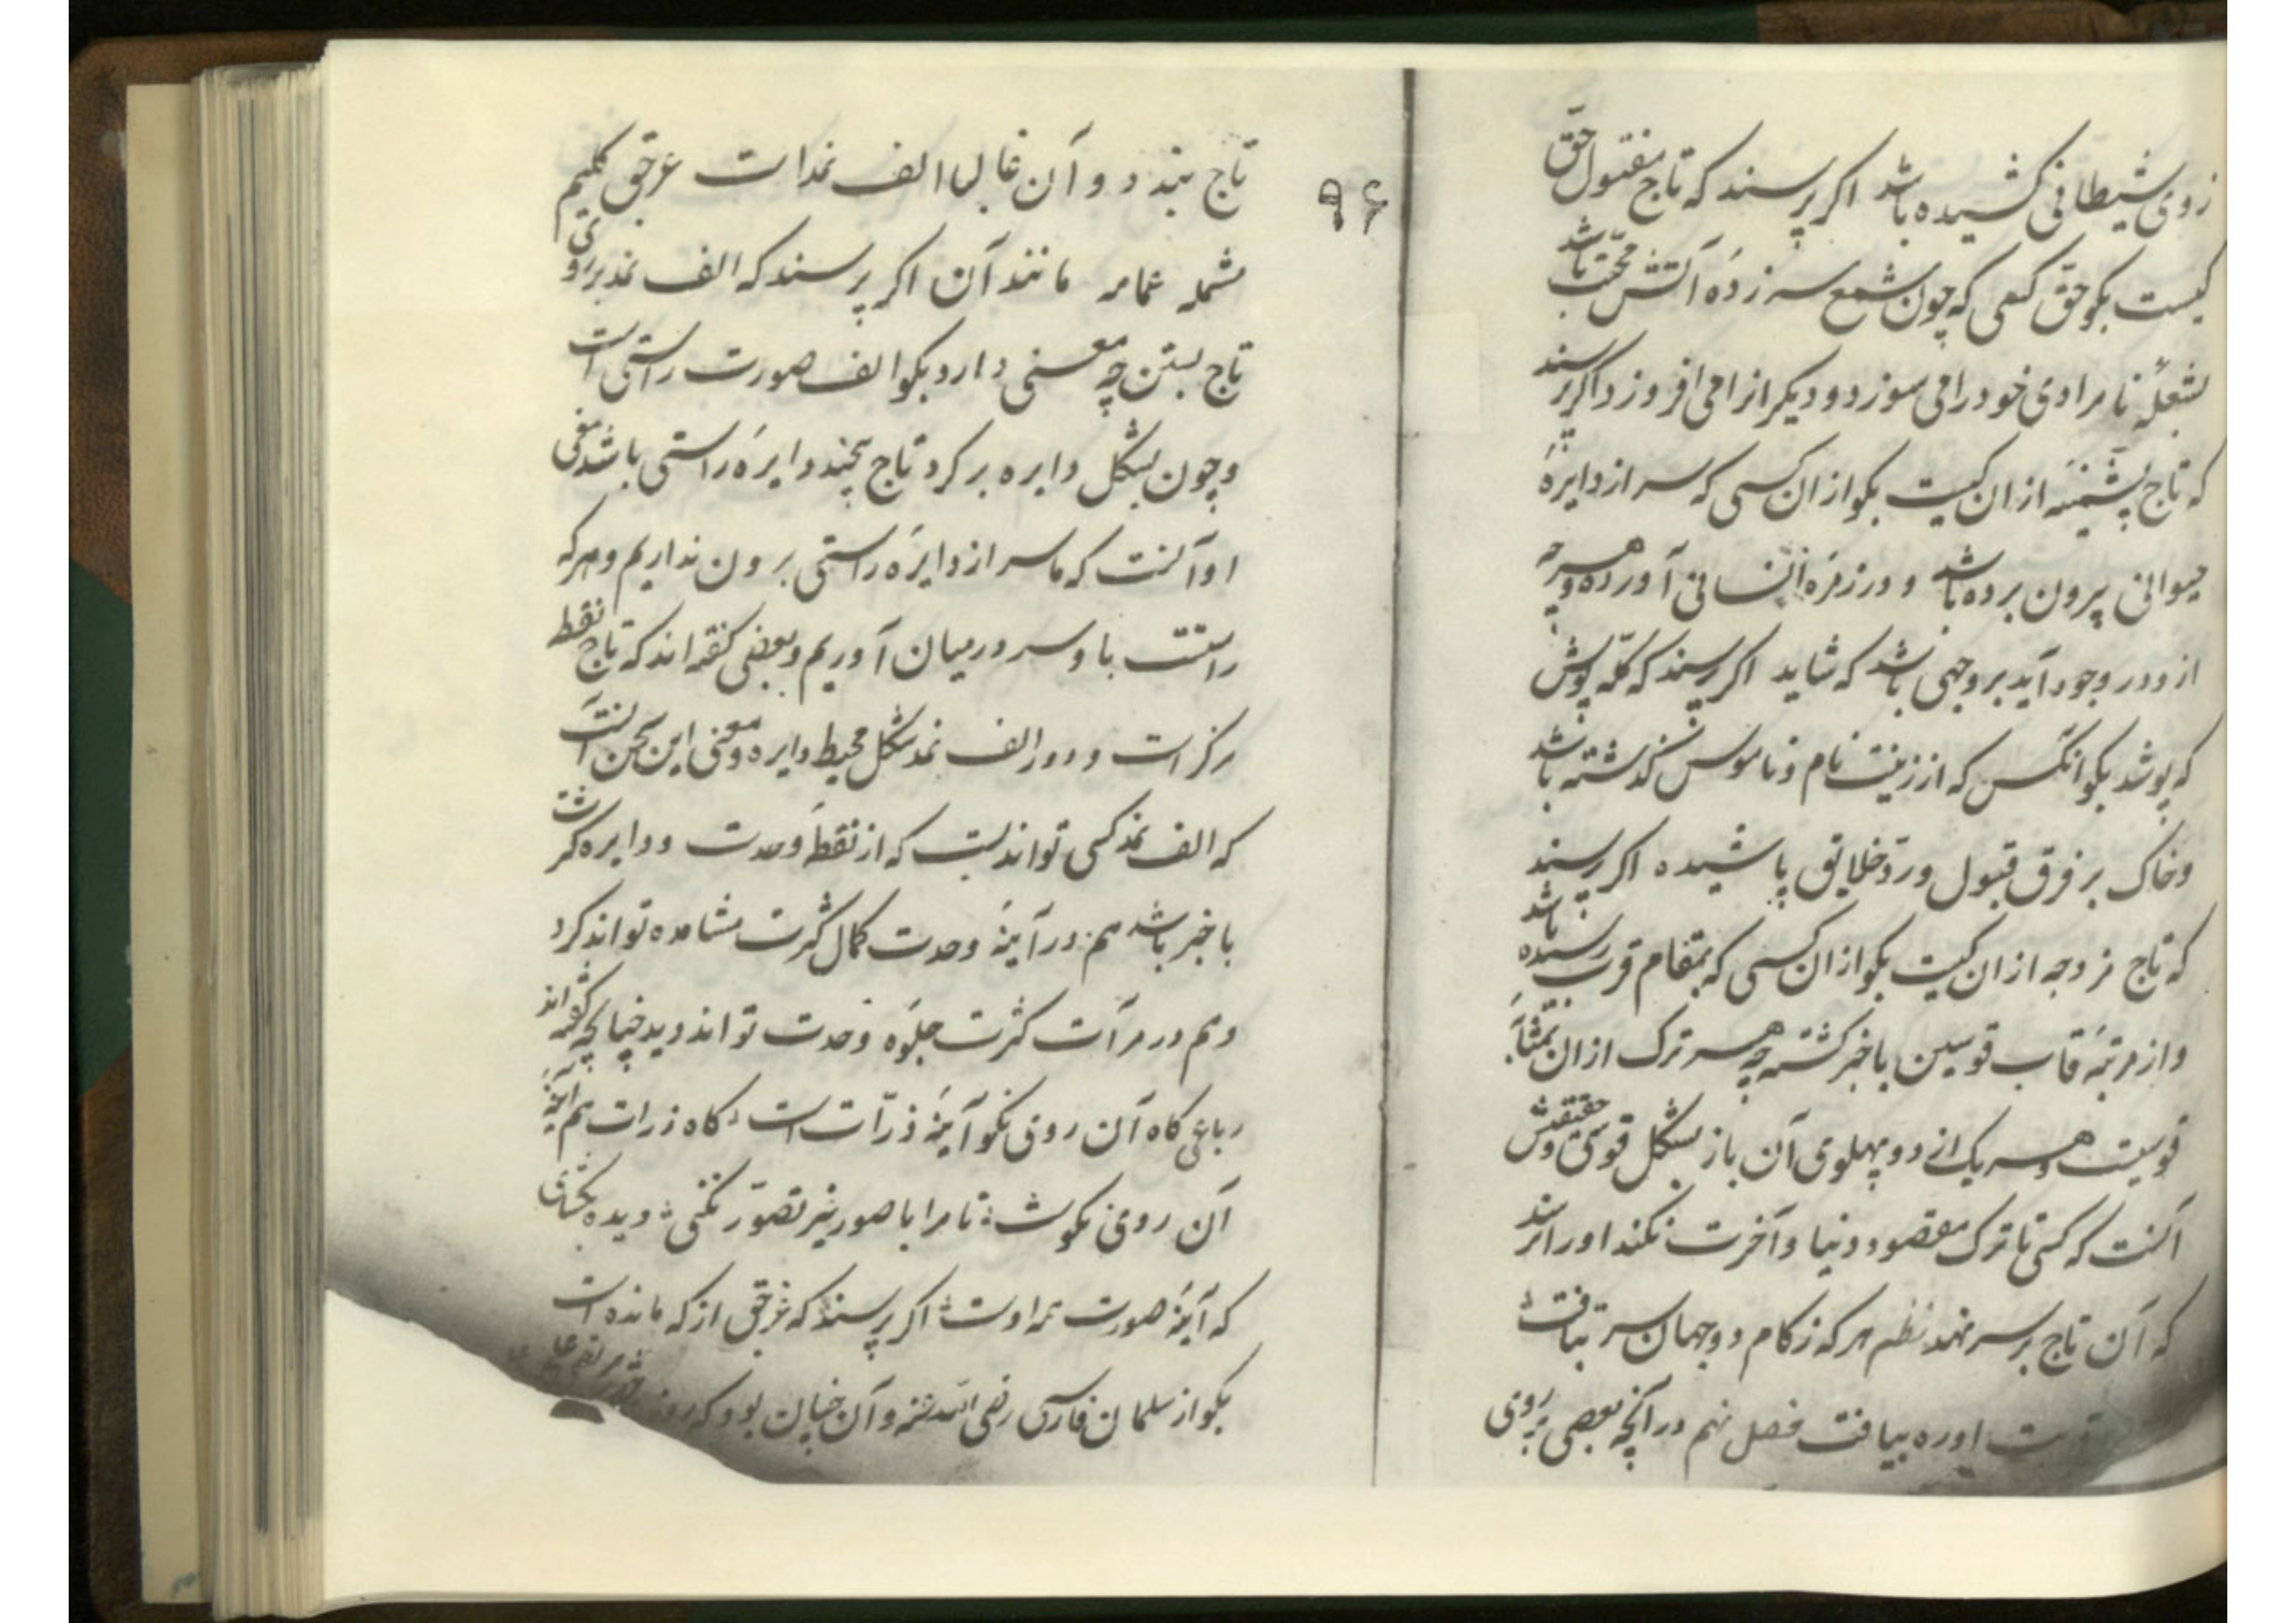 ز دی شیطانی کشیده باشد اکر پرسند که تاج مفتول حق
کیست بکو حق کسی که چون شمع سر زده آتش محبت باشد
بشعلهٔ نامرادی خود را می سوزد و دیکر انرا می افروزد اکر پرسند
که تاج پشمینه از ان کیست بکو از ان کسی که سر از دایرهٔ
حیوانی بیرون برده باشد و در زمرهٔ انسانی آورده و هر چه
ازو در وجود آید بر وجهی باشد که شاید اکر پرسند که کله پوش
که پوشد بکو انکس که از زینت نام و ناموس کذشته باشد
و خاک بر فرق قبول و رد خلایق پاشیده اکر پرسند
که تاج مزوجه از ان کیست بکو از ان کسی که بمقام قرب رسیده باشد
و از مرتبهٔ قاب قوسین با خبر کشته چه هر ترک از ان بمثابهٔ
قوسیست و هر یک از دو پهلوی آن باز بشکل قوسی و حقیقتش
آنست که کسی تا ترک مقصود دنیا و آخرت نکند او را نرسد
که آن تاج بر سر نهد نظم هر که ز کام دو جهان سر نتافت
او ره بیافت فصل نهم در آنچه بعضی بر روی
۹۶
تاج بندد و آن غالبا الف نمد است عرقچی کلیم
شمله عمامه مانند آن اکر پرسند که الف نمد بر روی
تاج بستن چه معنی دارد بکو الف صورت راستی است
و چون بشکل دایره بر کرد تاج پیچند دایرهٔ راستی باشد معنی
او آنست که ما سر از دایرهٔ راستی برون نداریم و هر که
راستست با و سر در میان آوریم و بعضی کفته اند که تاج نقطه
مرکز است و دور الف نمد شکل محیط دایره و معنی این سخن آنست
که الف نمد کسی تواند بست که از نقطهٔ وحدت و دایره کثرت
با خبر باشد هم در آینهٔ وحدت کمال کثرت مشاهده تواند کرد
و هم در مرآت کثرت جلوهٔ وحدت تواند دید چنانچه کفته اند
رباعی کاه آن روی نکو آینهٔ ذرّات است کاه ذرات هم آینهٔ
آن روی نکوست تا مرا با صور غیر تصوّر نکنی دیده بکشای
که آینهٔ صورت همه اوست اکر پرسند که عرقچی از که مانده است
بکو از سلمان فارسی رضی الله عنه و آن چنان بود که روزی